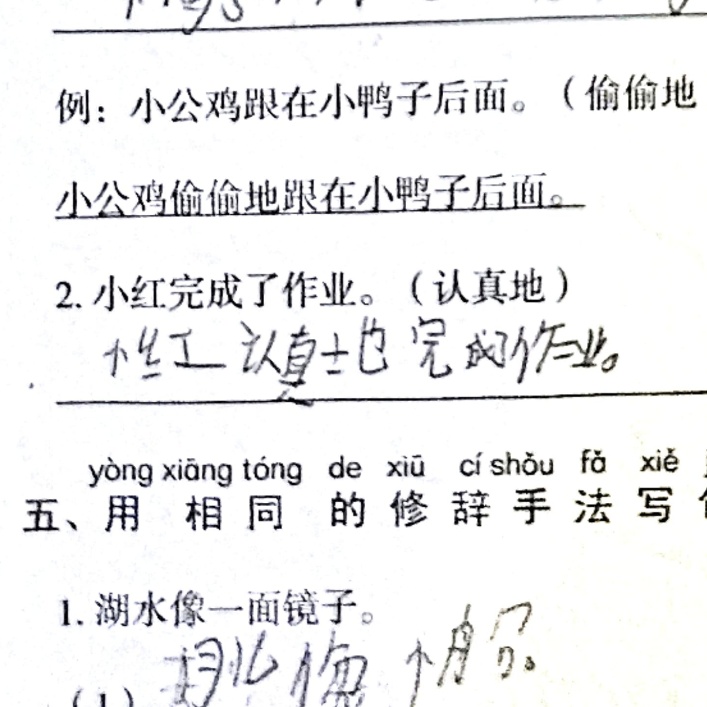 例：小公鸡跟在小鸭子后面。（偷偷地
小公鸡偷偷地跟在小鸭子后面。
2. 小红完成了作业。（认真地）
小红认真地完成作业。
yòng xiāng tóng de xiū cí shǒu fǎ xiě
五、用相同的修辞手法写
1. 湖水像一面镜子。
(1) 像小船。